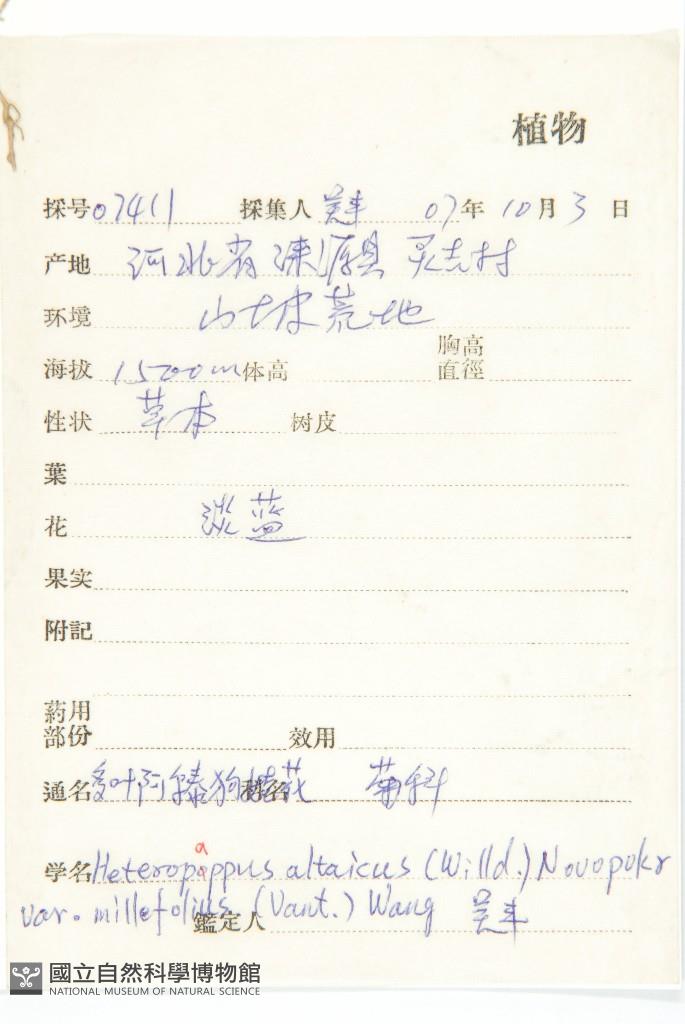 植物
採号 07411 採集人 07年 10月 3日
产地 河北省涞源县 村
环境 山坡荒地
胸高
海拔 1500m 体高 直徑
性状 草本 树皮
葉
花 淡蓝
果实
附記
葯用
部份 效用
通名 多叶阿泰狗娃花 科名 菊科
a
学名 Heteropappus altaicus (Willd.) Novopokr
var. millefolius (Vant.) Wang
鑑定人
國立自然科學博物館
NATIONAL MUSEUM OF NATURAL SCIENCE